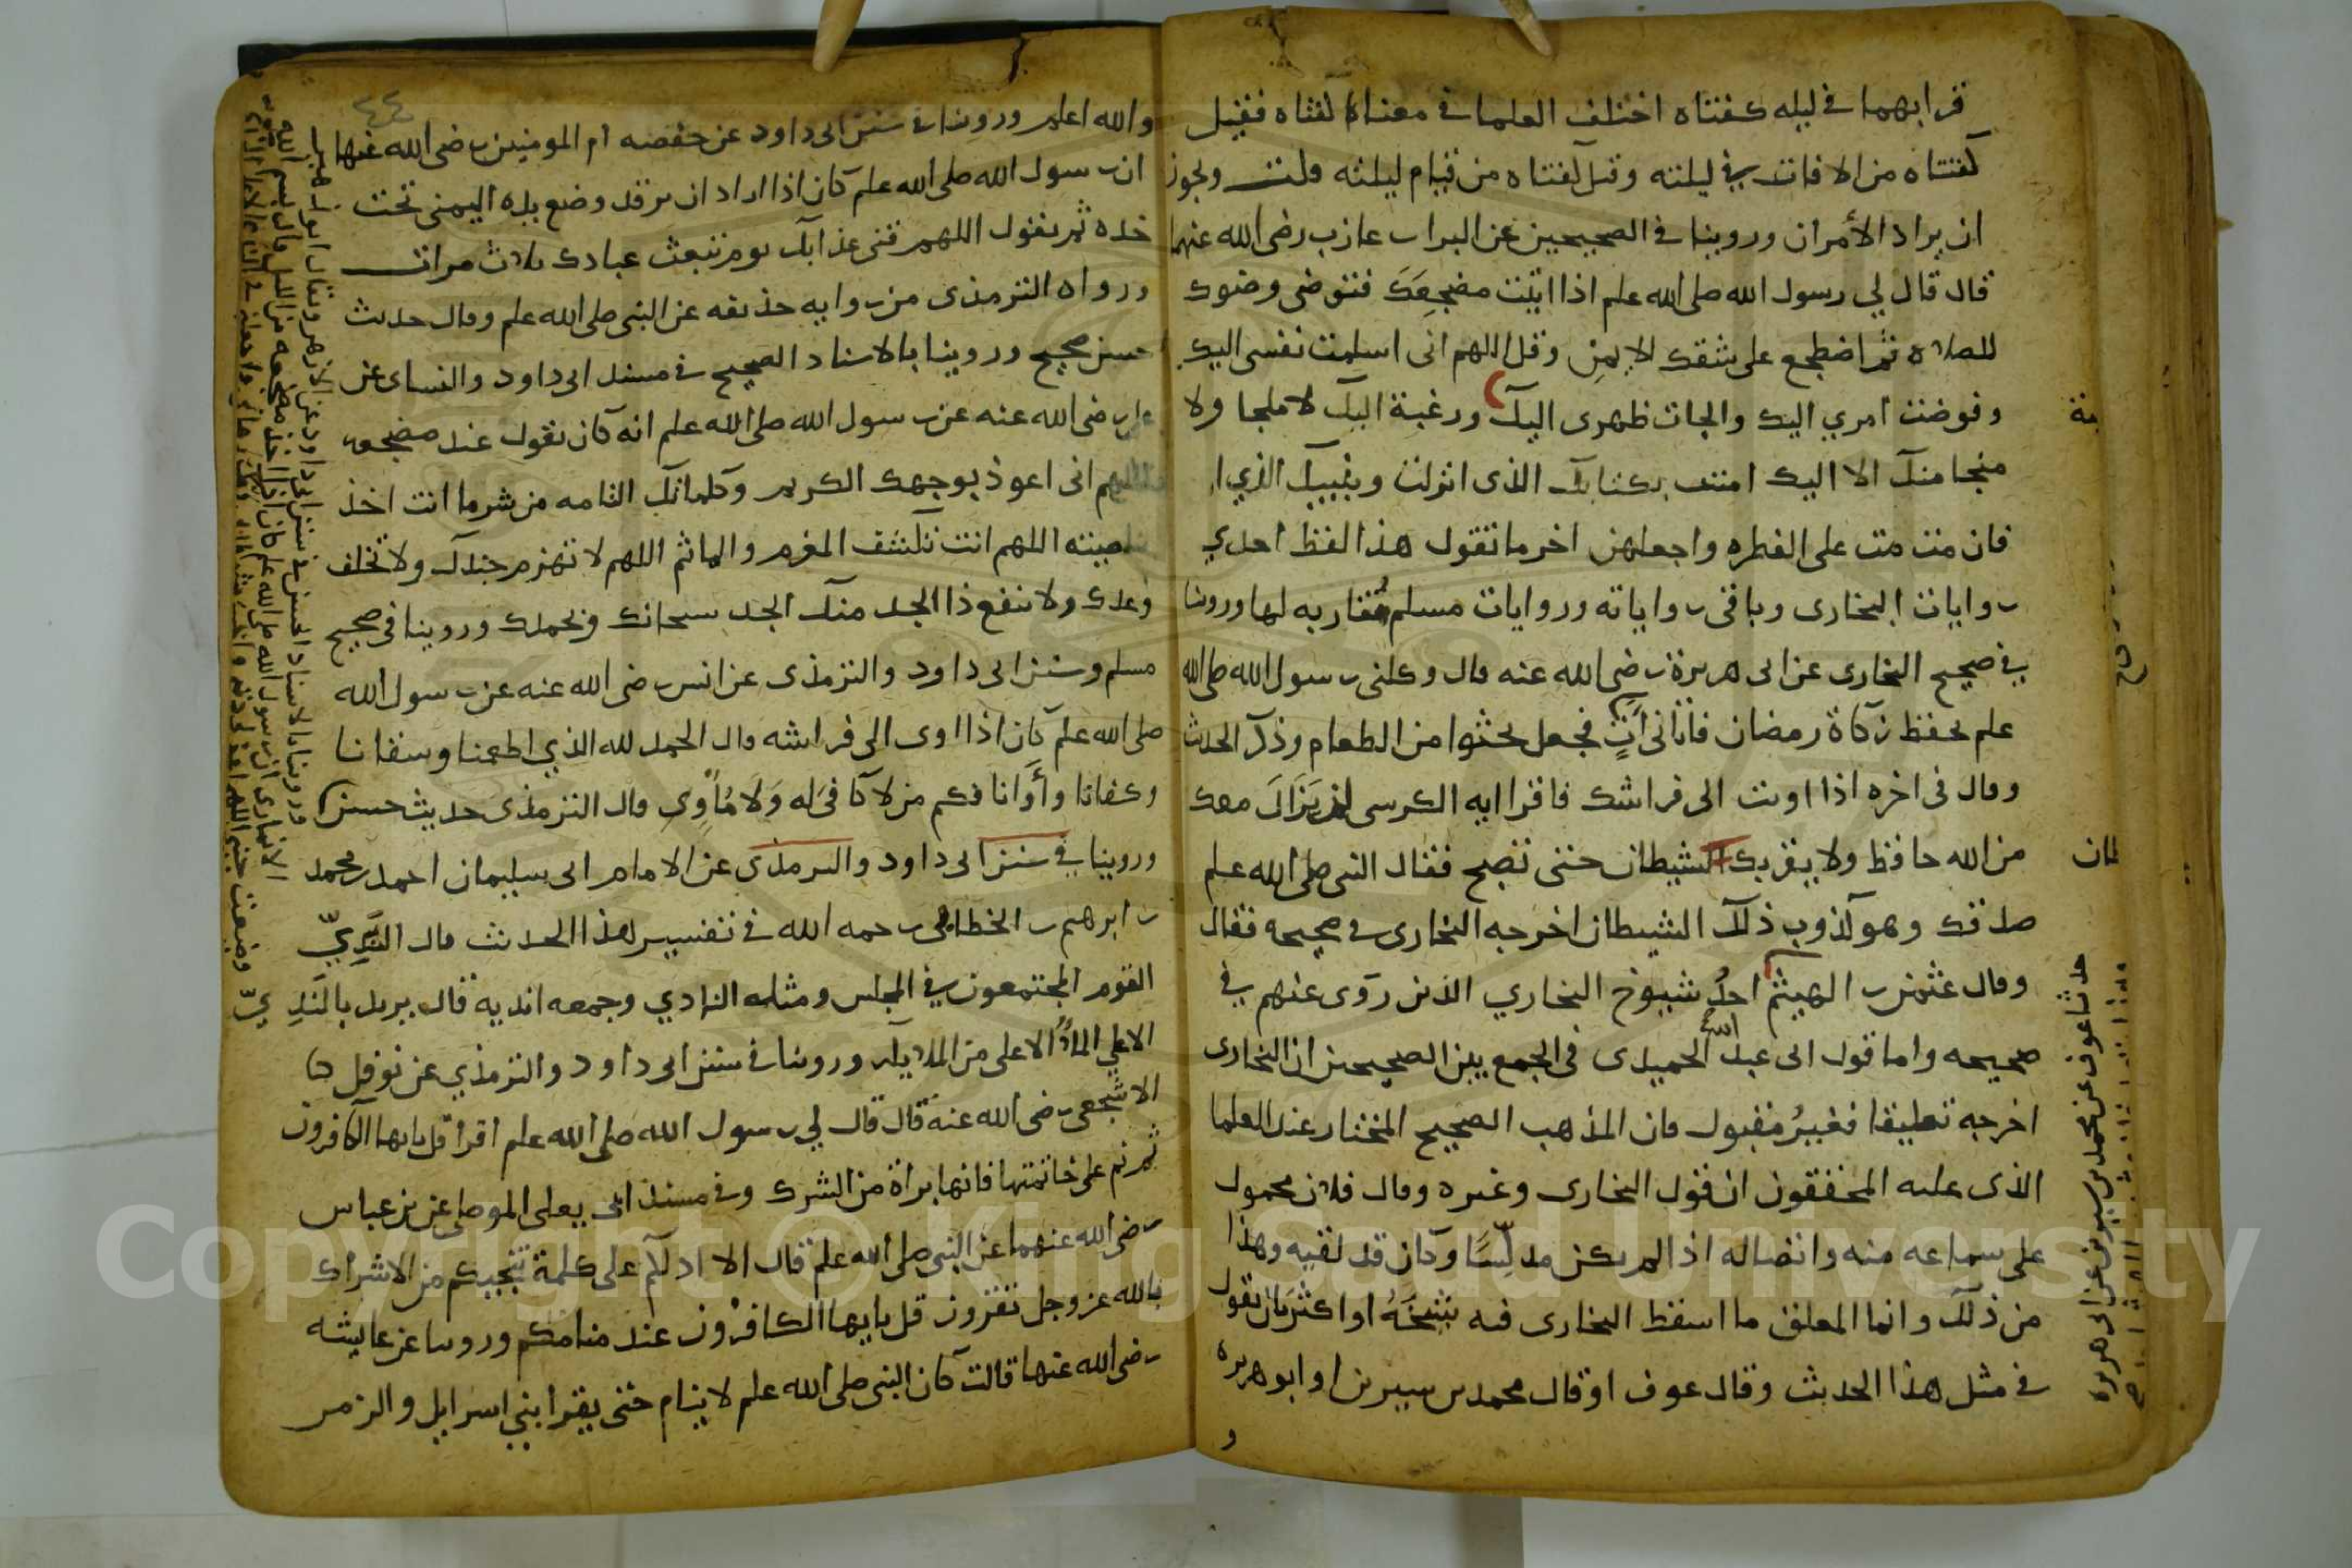 قرابهما في ليله كفتاه اختلف العلما في معناه كفتاه فقيل
كفتاه من الافات في ليلته وقيل كفتاه من قيام ليلته قلت ويجوز
ان يراد الأمران وروينا في الصحيحين عن البرا بن عازب رضى الله عنهما
قال قال لي رسول الله صلى الله علم اذا اتيت مضجعك فتوضى وضوك
للصلاه ثم اضطجع على شقك الايمن وقل اللهم انى اسلمت نفسى اليك
وفوضت امري اليك والجات ظهرى اليك ورغبة اليك لا ملجا ولا
منجا منك الا اليك امنت بكتابك الذى انزلت ونبيك الذي ا
فان مت مت على الفطره واجعلهن اخر ما تقول هذا لفظ احدي
روايات البخارى وباقى رواياته وروايات مسلم متقاربه لها وروينا
في صحيح البخارى عن ابى هريرة رضى الله عنه قال وكلنى رسول الله صلى الله
علم بحفظ زكاة رمضان فاتانى آتٍ فجعل يحثوا من الطعام وذكر الحديث
وقال فى اخره اذا اويت الى فراشك فاقرا ايه الكرسى لن يزال معك
من الله حافظ ولا يقربك الشيطان حتى تصبح فقال النبى صلى الله علم
صدقك وهو كذوب ذلك الشيطان اخرجه البخارى في صحيحه فقال
وقال عثمن بن الهيثم احدُ شيوخ البخاري الذين روى عنهم في
صحيحه واما قول ابى عبد الله الحميدى فى الجمع بين الصحيحين ان البخارى
اخرجه تعليقا فغيرُ مقبول فان المذهب الصحيح المختار عند العلما
الذى عليه المحققون ان قول البخارى وغيره وقال فلان محمول
على سماعه منه واتصاله اذا لم يكن مدلسًا وكان قد لقيه وهذا
من ذلك وانما المعلق ما اسقط البخارى فيه شيخَهُ او اكثر بان يقول
في مثل هذا الحديث وقال عوف او قال محمد بن سيرين او ابو هريره
حدثنا عوف عن محمد بن سيرين عن ابى هريره
٤٤
والله اعلم وروينا في سنن ابى داود عن حفصه ام المومنين رضى الله عنها
ان رسول الله صلى الله علم كان اذا اراد ان يرقد وضع يده اليمنى تحت
خده ثم يقول اللهم قنى عذابك يوم تبعث عبادك ثلاث مرات
ورواه الترمذى من روايه حذيفه عن النبى صلى الله علم وقال حديث
حسن صحيح وروينا بالاسناد الصحيح في مسند ابى داود والنساى عن
على رضى الله عنه عن رسول الله صلى الله علم انه كان يقول عند مضجعه
اللهم انى اعوذ بوجهك الكريم وكلماتك التامه من شر ما انت اخذ
بناصيته اللهم انت تكشف المغرم والماثم اللهم لا تهزم جندك ولا تخلف
وعدك ولا ينفع ذا الجد منك الجد سبحانك وبحمدك وروينا فى صحيح
مسلم وسنن ابى داود والترمذى عن انس رضى الله عنه عن رسول الله
صلى الله علم كان اذا اوى الى فراشه قال الحمد لله الذي اطعمنا وسقانا
وكفانا وأوانا فكم من لا كافى له ولا مُأوِى قال الترمذى حديث حسن
وروينا في سنن ابى داود والترمذى عن الامام ابى سليمان احمد بن محمد
بن ابرهيم بن الخطابى رحمه الله في تفسير هذا الحديث قال النَّدِيّ
القوم المجتمعون في المجلس ومثله النادي وجمعه انديه قال يريد بالندِيّ
الاعلى الملأ الاعلى من الملايكه وروينا في سنن ابى داود والترمذي عن نوفل
الاشجعى رضى الله عنه قال قال لي رسول الله صلى الله علم اقرا قل يايها الكافرون
ثم نم على خاتمتها فانها براة من الشرك وفي مسند ابى يعلى الموصلى عن بن عباس
رضى الله عنهما عن النبى صلى الله علم قال الا ادلكم على كلمة تنجيكم من الاشراك
بالله عز وجل تقرون قل يايها الكافرون عند منامكم وروينا عن عايشه
رضى الله عنها قالت كان النبى صلى الله علم لا ينام حتى يقرا بني اسرايل والزمر
وروينا بالاسناد الحسن في سنن ابى داود عن الازهر ويقال ابو زهير
الانمارى ان رسول الله صلى الله علم كان اذا اخذ مضجعه من الليل قال بسم الله
وضعت جنبى اللهم اغفر لى ذنبى واخس شيطانى وفك رهانى واجعلنى في الندى الاعلى
Copyright © King Saud University